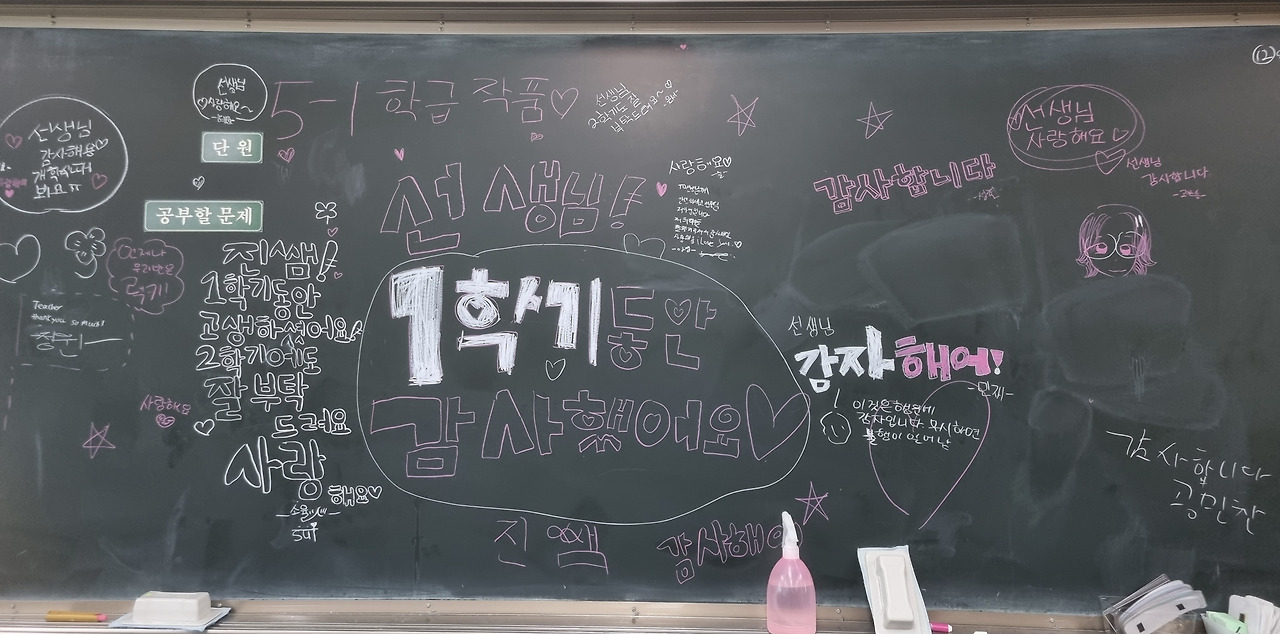 5-1 학급 작품♡
선생님
♡사랑해요~
단원
공부할 문제
선생님
감사해용
개학식때
봐요ㅠ
언제나
우리반은
럭키!
Teacher
thank you so much!
사랑해요
지쌤!
1학기동안
고생하셨어요!
2학기에도
잘 부탁
드려요
사랑
해요♡
선생님
2학기도 잘
부탁드려요~
선생님!
1학기동안
감사했어요♡
진 쌤
감사해요
사랑해요♡
감사합니다
선생님
사랑해요♡
선생님
감사합니다
선생님
감자해여!
-민재-
이것은 행운의
감자입니다 무시하면
불행이 일어남
감사합니다
공민찬